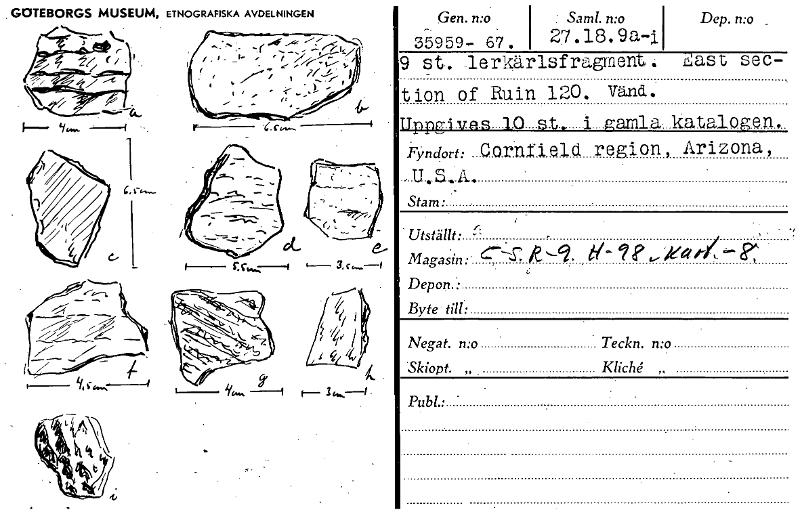 GÖTEBORGS MUSEUM, ETNOGRAFISKA AVDELNINGEN
a
4 cm
b
6.5 cm
c
6,5 cm
d
5,5 cm
e
3,5 cm
f
4,5 cm
g
4 cm
h
3 cm
i
Gen. n:o
35959- 67.
Saml. n:o
27.18.9a-i
Dep. n:o
9 st. lerkärlsfragment. East sec-
tion of Ruin 120. Vänd.
Uppgives 10 st. i gamla katalogen.
Fyndort: Cornfield region, Arizona,
U.S.A.
Stam:
Utställt:
Magasin: C-S. R-9. H-98. Kart. -8.
Depon.:
Byte till:
Negat. n:o Teckn. n:o
Skiopt. „ Kliché „
Publ.: